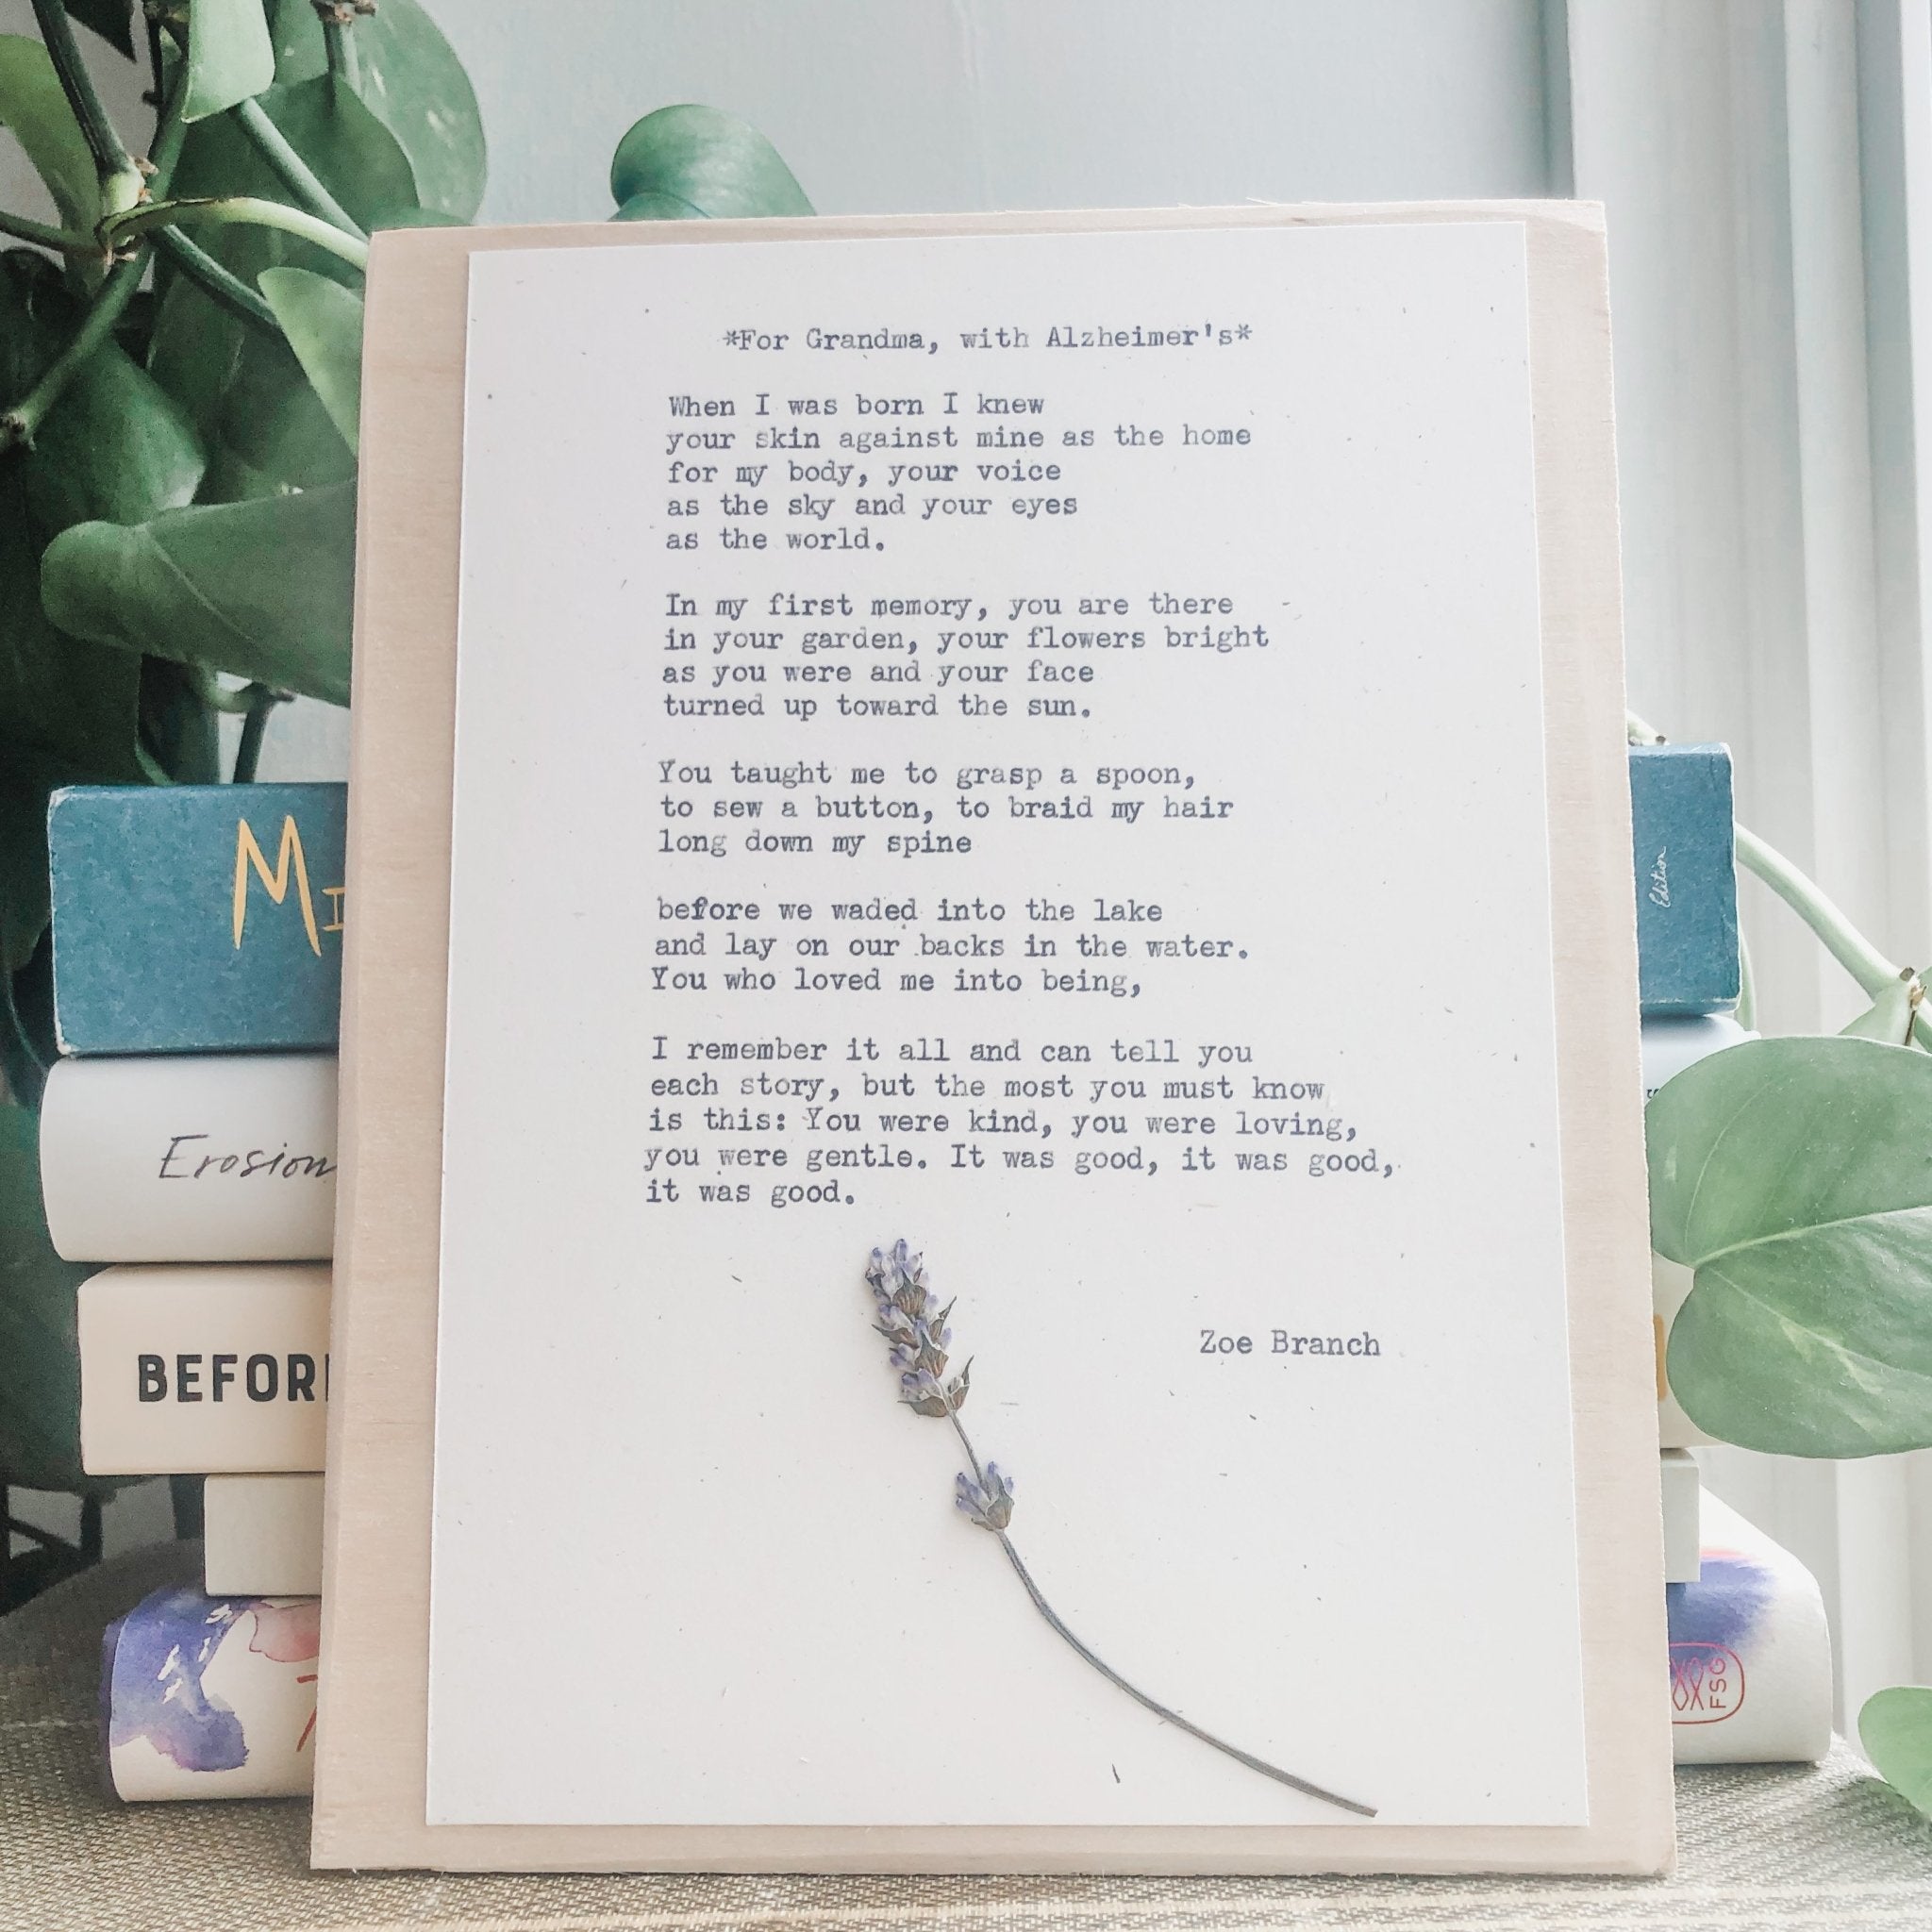 *For Grandma, with Alzheimer's*
When I was born I knew
your skin against mine as the home
for my body, your voice
as the sky and your eyes
as the world.
In my first memory, you are there
in your garden, your flowers bright
as you were and your face
turned up toward the sun.
You taught me to grasp a spoon,
to sew a button, to braid my hair
long down my spine
before we waded into the lake
and lay on our backs in the water.
You who loved me into being,
I remember it all and can tell you
each story, but the most you must know
is this: You were kind, you were loving,
you were gentle. It was good, it was good,
it was good.
Zoe Branch
Edition
Erosion
FSG